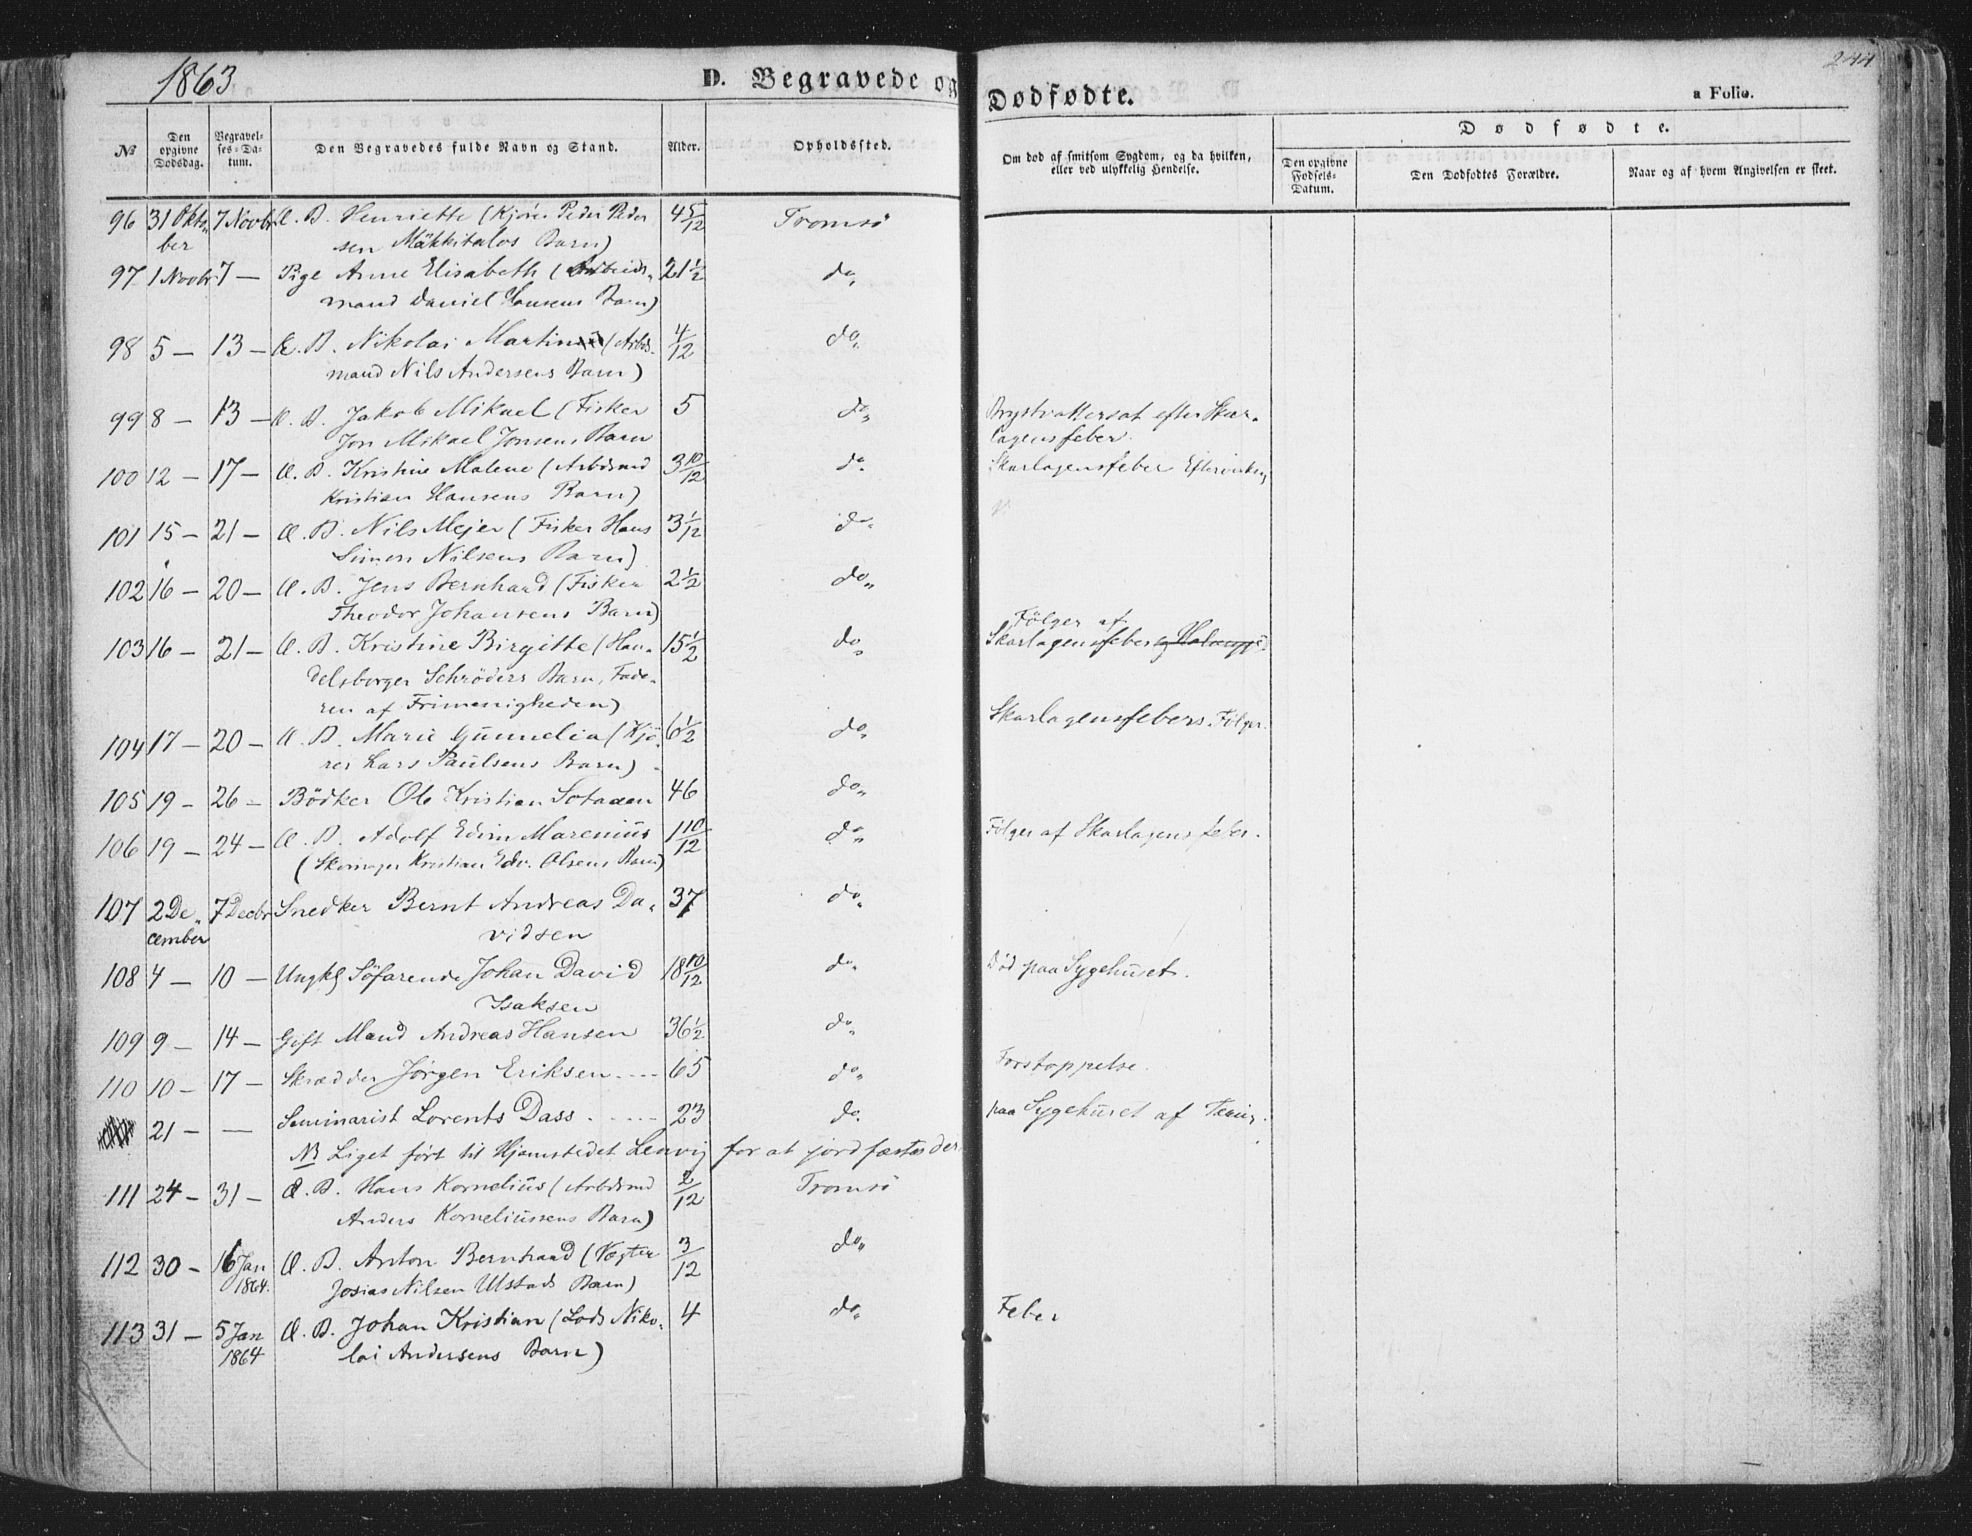 1863
D. Begravede og Dødfødte.
244
a Folio.
№
Den opgivne Dödsdag.
Begravelses-Datum.
Den Begravedes fulde Navn og Stand.
Alder.
Opholdssted.
Om død af smitsom Sygdom, og da hvilken, eller ved ulykkelig Hendelse.
Dødfødte.
Den opgivne Fødsels-Datum.
Den Dødfødtes Forældre.
Naar og af hvem Angivelsen er skeet.
96 31 Okto- 7 Novbr Æ. B. Henriette (Kjörer Peder Peder 4 5/12 Tromsö
ber sen Mäkkitalos Barn)
97 1 Novbr 7 — Pige Anne Elisabeth (Arbeids- 21 1/2 do
mand Daniel Hansens Barn)
98 5 — 13 — Æ. B. Nikolai Martin (Arbds- 4/12 do
mand Nils Andersens Barn)
99 8 — 13 — Æ. B. Jakob Mikael (Fisker 5 do Brystvattersot efter Skar-
Jon Mikael Jonsens Barn lagensfeber.
100 12 — 17 — Æ. B. Kristine Malene (Arbdsmd 3 10/12 do Skarlagensfeber Eftervirkn
Kristian Hansens Barn)
101 15 — 21 — Æ. B. Nils Mejer (Fisker Hans 3 1/12 do
Simon Nilsens Barn)
102 16 — 20 — Æ. B. Jens Bernhard (Fisker 2 1/2 do
Theodor Johansens Barn)
Fölger af
103 16 — 21 — Æ. B. Kristine Birgitte (Han- 15 1/2 do Skarlagensfeber
delsborger Schröders Barn, Fade-
ren af Frimenigheden)
104 17 — 20 — Æ. B. Marie Gunnelia (Kjö- 6 1/2 do Skarlagensfebers Fölger.
rer Lars Paulsens Barn)
105 19 — 26 — Bödker Ole Kristian Sotaaen 46 do
106 19 — 24 — Æ. B. Adolf Edvin Marenius 1 10/12 do Fölger af Skarlagensfeber.
(Skomager Kristian Edv. Olsens Barn)
107 2 De- 7 Decbr Snedker Bernt Andreas Da- 37 do
cember vidsen
108 4 — 10 — Ungk. Söfarende Johan David 18 10/12 do Död paa Sygehuset.
Isaksen
109 9 — 14 — Gift Mand Andreas Hansen 36 1/2 do
110 10 — 17 — Skrædder Jörgen Eriksen 65 do Forstoppelse.
21 — — Seminarist Lorents Dass 23 do paa Sygehuset af Tæring.
NB Liget fört til Hjemstedet Lenvig for at jordfæstes der.
111 24 — 31 — Æ. B. Hans Kornelius (Arbdsmd 2/12 Tromsö
Anders Korneliussens Barn)
112 30 — 16 Jan Æ. B. Anton Bernhard (Vægter 3/12 do
1864. Josias Nilsen Ulstads Barn)
113 31 — 5 Jan Æ. B. Johan Kristian (Lods Niko- 4 do Feber
1864 lai Andersens Barn)